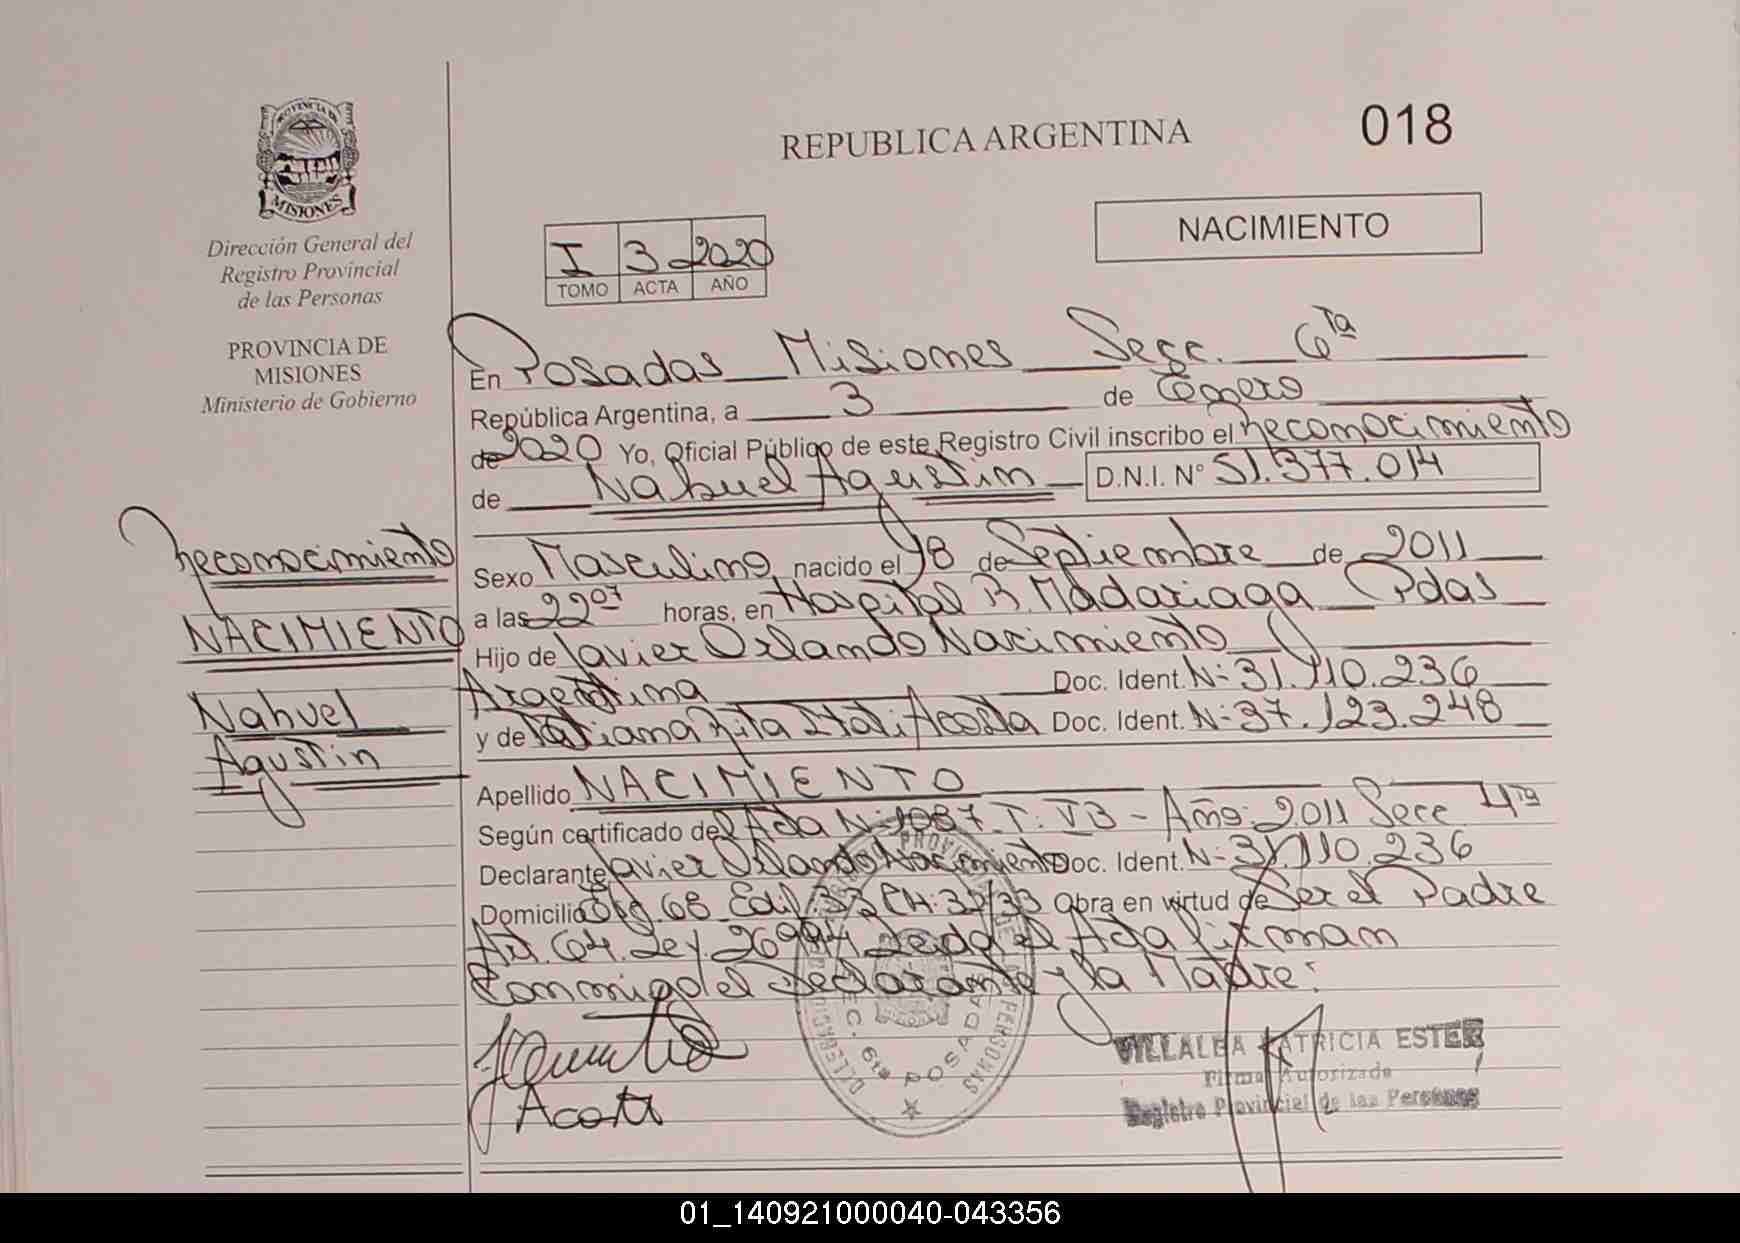 PROVINCIA DE
MISIONES
Dirección General del
Registro Provincial
de las Personas
PROVINCIA DE
MISIONES
Ministerio de Gobierno
Reconocimiento
NACIMIENTO
Nahuel
Agustin
REPUBLICA ARGENTINA
018
NACIMIENTO
I 3 2020
TOMO ACTA AÑO
En Posadas Misiones Secc. 6ta
República Argentina, a 3 de Enero
de 2020 Yo, Oficial Público de este Registro Civil inscribo el Reconocimiento
de Nahuel Agustin D.N.I. N° 51.377.014
Sexo Masculino nacido el 18 de Septiembre de 2011
a las 22 07 horas, en Hospital R. Madariaga Pdas
Hijo de Javier Orlando Nacimiento
Argentina Doc. Ident. N: 31.110.236
y de Tatiana Rita Itati Acosta Doc. Ident. N: 37.123.248
Apellido NACIMIENTO
Según certificado del Acta N: 1087 T: VB - Año: 2011 Secc 4ta
Declarante Javier Orlando Nacimiento Doc. Ident. N: 31.110.236
Domicilio 68 Edif: 33 CH: 32/33 Obra en virtud de Ser el Padre
Art. 64. Ley. 26994 Leida el Acta firman
Conmigo el Declarante y la Madre:
Acosta
SEC. 6ta POSADAS
VILLALBA PATRICIA ESTER
Firma Autorizada
Registro Provincial de las Personas
01_140921000040-043356